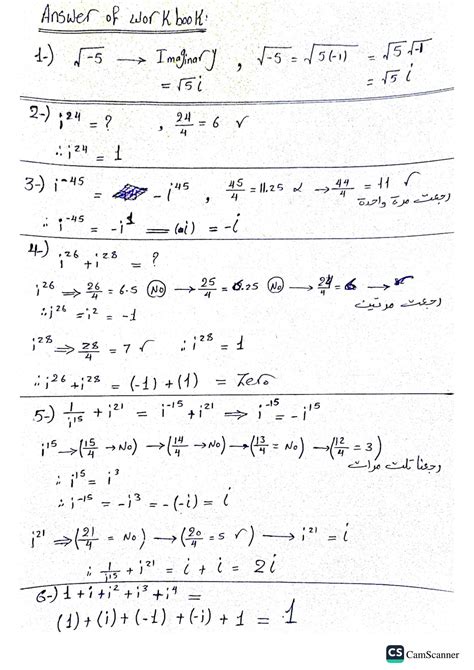 Answer of workbook:
1-) √-5 → Imaginary , √-5 = √5(-1) = √5 √-1
= √5 i = √5 i
2-) i^24 = ? , 24/4 = 6 √
∴ i^24 = 1
3-) i^-45 = - i^45 , 45/4 = 11.25 x → 44/4 = 11 √
رجعت مرة واحدة
∴ i^-45 = -i^1 = (-i) = -i
4-) i^26 + i^28 = ?
i^26 ⇒ 26/4 = 6.5 (No) → 25/4 = 6.25 (No) → 24/4 = 6 →
∴ i^26 = i^2 = -1 رجعت مرتين
i^28 ⇒ 28/4 = 7 √ ∴ i^28 = 1
∴ i^26 + i^28 = (-1) + (1) = Zero
5-) 1/i^15 + i^21 = i^-15 + i^21 ⇒ i^-15 = -i^15
i^15 → (15/4 → No) → (14/4 → No) → (13/4 = No) → (12/4 = 3)
رجعنا تلت مرات
∴ i^15 = i^3
∴ i^-15 = -i^3 = -(-i) = i
i^21 ⇒ (21/4 = No) → (20/4 = 5 √) → i^21 = i
∴ 1/i^15 + i^21 = i + i = 2i
6-) 1 + i + i^2 + i^3 + i^4 =
(1) + (i) + (-1) + (-i) + 1 = 1
CS CamScanner